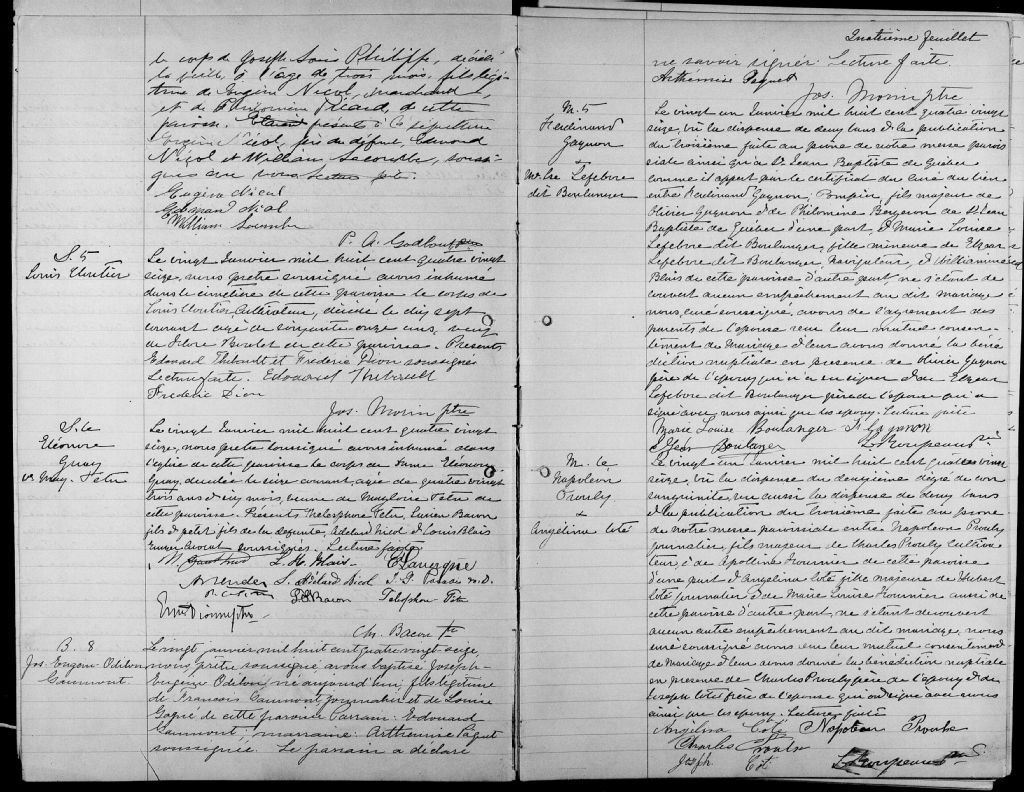 le corps de Joseph Louis Philippe, décédé
la veille, à l'âge de trois mois, fils légi-
time de Eugène Nicol, marchand,
et de Philomène Picard, de cette
paroisse. Etaient présents à la sépulture
Eugène Nicol, père du défunt, Edmond
Nicol et William Lacombe, soussi-
gnés
Eugène Nicol
Edmond Nicol
William Lacombe
P. A. Godbout ptre
S. 5
Louis Cloutier
Le vingt Janvier mil huit cent quatre vingt
seize, nous prêtre soussigné avons inhumé
dans le cimetière de cette paroisse le corps de
Louis Cloutier, cultivateur, décédé le dix sept
courant agé de soixante-onze ans, veuf
de Flore Boulet de cette paroisse. Présents
Edouard Thibault et Frédéric Dion soussignés
Lecture faite. Edouard Thibault
Frédéric Dion
Jos. Morin ptre
S. 6
Eléonore
Guay
Ve Mag. Tétu
Le vingt Janvier mil huit cent quatre vingt
seize, nous prêtre soussigné avons inhumé dans
l'église de cette paroisse le corps de Dame Eléonore
Guay, décédée le seize courant, agée de quatre vingt
trois ans & six mois, veuve de Magloire Tétu de
cette paroisse. Présents Thélesphore Tétu, Lucien Bacon
fils & petit fils de la défunte, Adélard Nicol & Louis Blais
soussignés. Lecture faite
L. H. Blais Lavergne
S. Adélard Nicol
L. Bacon Télesphore Tétu
Ch. Bacon Ptre
B. 8
Jos. Eugène Odilon
Gaumont.
Le vingt janvier mil huit cent quatre vingt-seize,
nous prêtre soussigné avons baptisé Joseph-
Eugène Odilon, né aujourd'hui, fils légitime
de François Gaumont, journalier et de Louise
Gagné de cette paroisse. Parrain: Edouard
Gaumont, marraine: Arthémise Paquet
soussignée. Le parrain a déclaré
Quatrième feuillet
ne savoir signer. Lecture faite.
Arthémise Paquet
Jos. Morin ptre
M. 5
Ferdinand
Gagnon
&
M. Lse Lefebvre
dit Boulanger
Le vingt un Janvier mil huit cent quatre vingt
seize, vû la dispense de deux bans & la publication
du troisième faite au prône de notre messe parois
siale ainsi qu'à St Jean Baptiste de Québec
comme il appert par le certificat du Curé du lieu
entre Ferdinand Gagnon, Pompier, fils majeur de
Olivier Gagnon & de Philomène Bergeron de St Jean
Baptiste de Québec d'une part, & Marie Louise
Lefebvre dit Boulanger, fille mineure de Elzéar
Lefebvre dit Boulanger, navigateur, & Williamine
Blais de cette paroisse d'autre part, ne s'étant dé
couvert aucun empêchement au dit mariage
nous, curé soussigné, avons de l'agrément des
parents de l'épouse reçu leur mutuel consen-
tement de Mariage & leur avons donné la béné
diction nuptiale en présence de Olivier Gagnon
père de l'époux qui n'a su signer & de Elzéar
Lefebvre dit Boulanger père de l'épouse qui a
signé avec nous ainsi que les époux. Lecture faite
Marie Louise Boulanger F. Gagnon
Elzéar Boulanger
M. 6
Napoléon
Proulx
&
Angélina Coté
Le vingt un Janvier mil huit cent quatre vingt
seize, vû la dispense du deuxième dégré de con
sanguinité, vu aussi la dispense de deux bans
& la publication du troisième faite au prône
de notre messe paroissiale entre Napoléon Proulx
journalier, fils majeur de Charles Proulx, cultiva
teur, & de Apolline Fournier de cette paroisse
d'une part & Angélina Coté fille majeure de Hubert
Coté journalier & de Marie Louise Fournier aussi de
cette paroisse d'autre part, ne s'étant découvert
aucun autre empêchement au dit mariage, nous
curé soussigné avons reçu leur mutuel consentement
de Mariage & leur avons donné la bénédiction nuptiale
en présence de Charles Proulx père de l'époux & de
Joseph Coté frère de l'épouse qui ont signé avec nous
ainsi que les époux. Lecture faite
Angélina Coté Napoléon Proulx
Charles Proulx
Joseph Coté